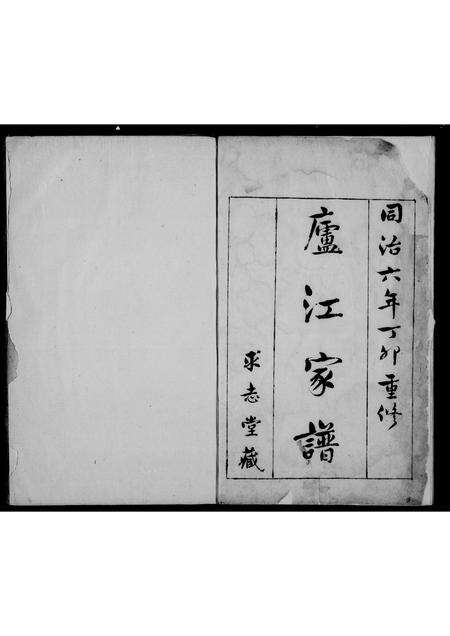 同治六年丁卯重修
廬江家譜
求志堂藏